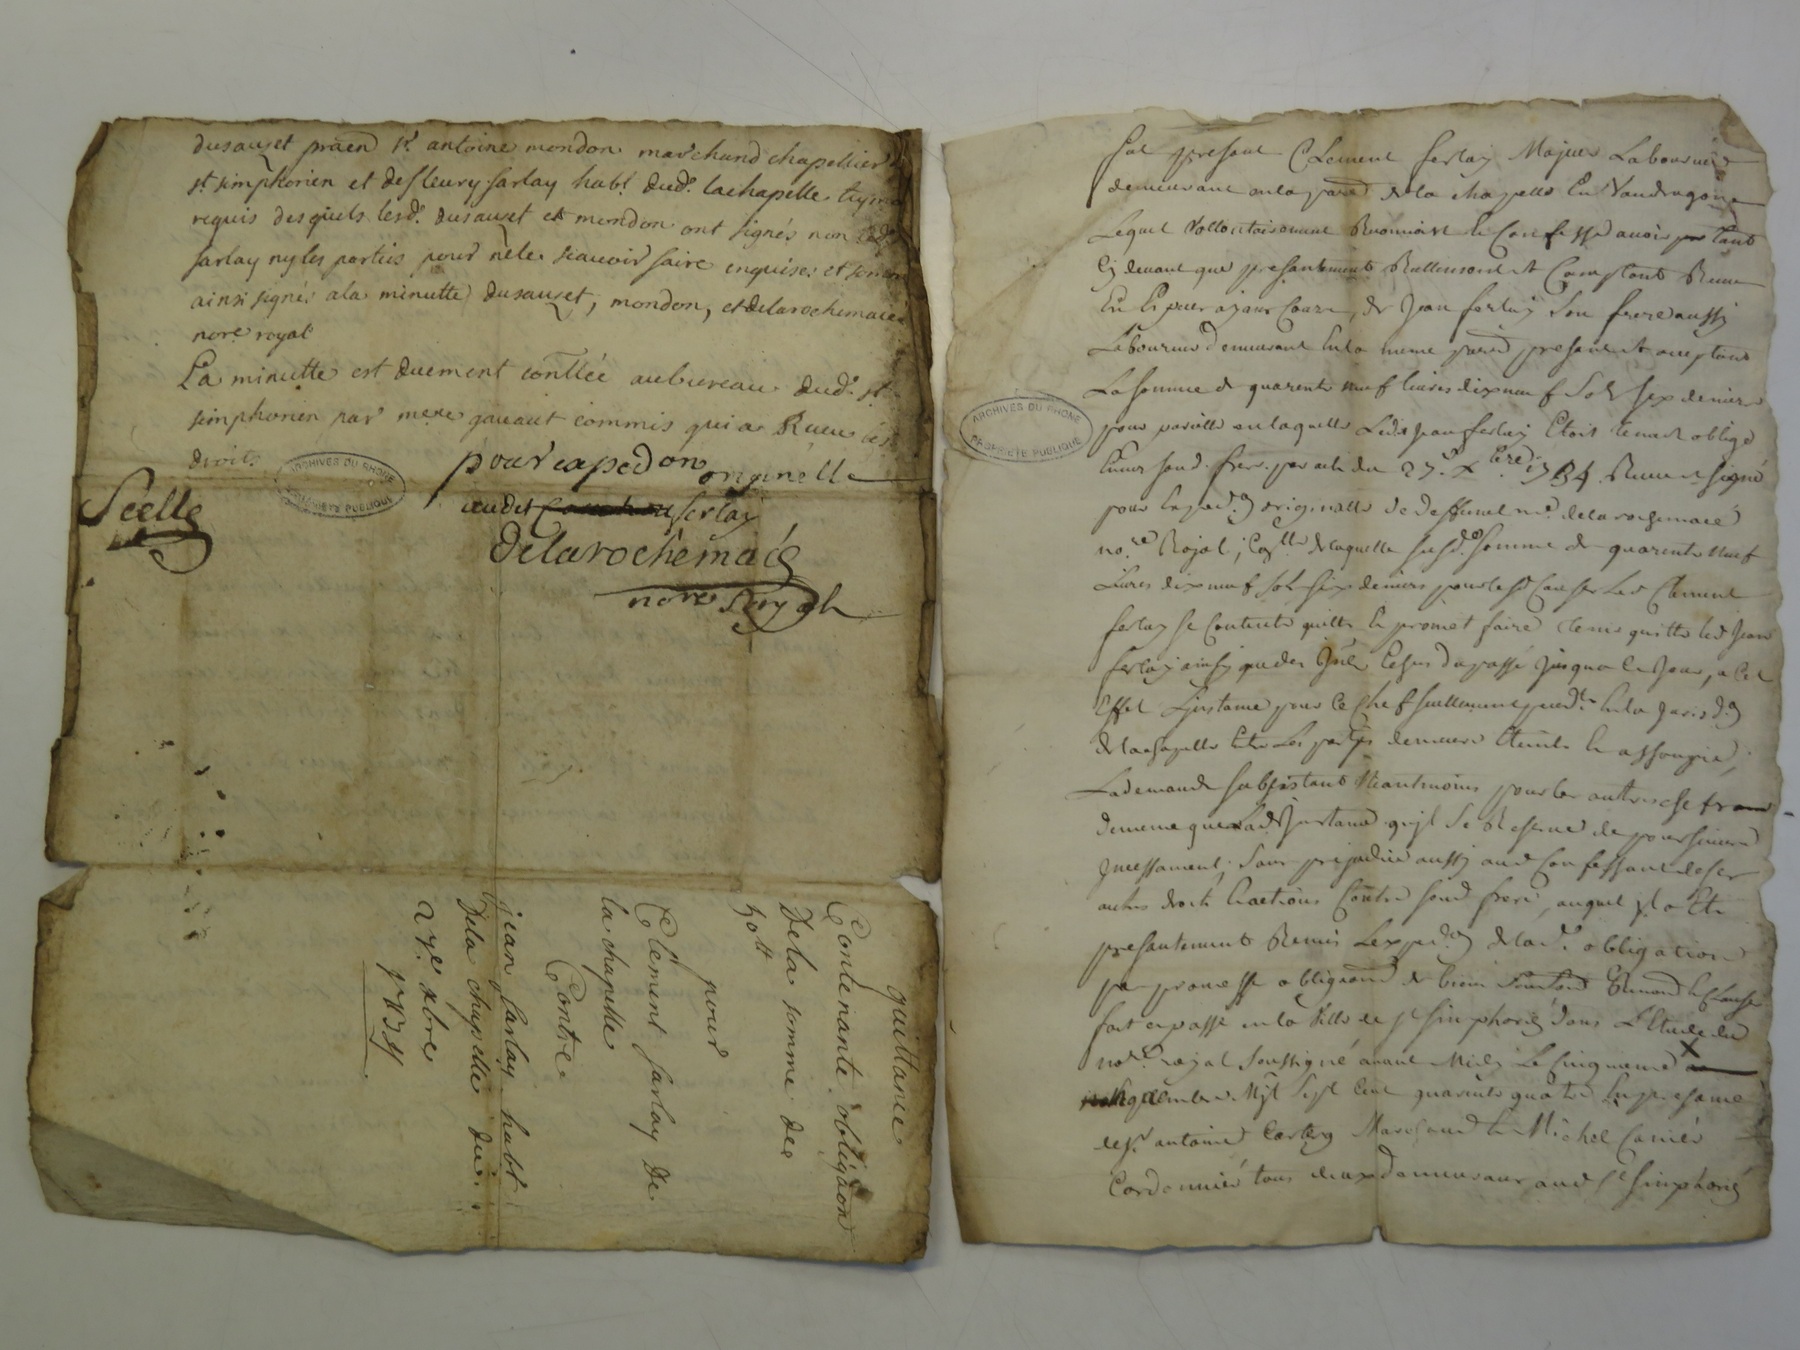 dusauzet praen sr. antoine mondon marchand chapellier
st. simphorien et de fleury farlay habt. dud. lachapelle tesm
requis desquels lesd. dusauzet et mondon ont signés non led.
farlay ny les parties pour ne le scauoir faire enquises et
ainsi signés a la minutte dusauzet, mondon, et delarochemacé
nore. royal
La minutte est duement contllée au bureau dud. st
simphorien par me gauaut commis qui a Receu les
droits
pour expedon originelle
audit farlay
Delarochemacé
nore Royal
Scellé
ARCHIVES DU RHONE
PROPRIETE PUBLIQUE
quittance
Contenante obligaon
Dela somme de
50tt
pour
Clement farlay De
la chapelle
Contre
jean farlay habt
Dela chapelle du
27e xbre
1734
fut present Clement ferlay Majeur Laboureur
demeurant en la parr. de la chapelle En Vaudragon
Lequel Vollontairement Reconnoist et Confesse auoir tant
Cy deuant que presentement Reellement et Comptant Receu
En Espece ayant Cours, de Jean ferlay son frere aussy
Laboureur demeurant En la meme parr. present et acceptant
La somme de quarente neuf liures dix neuf sols six deniers
pour pareille en laquelle Led. Jean ferlay Etoit tenu et obligé
Enuers sond. frere par acte du 27e. xbre. 1734 Receu et signé
pour Expedon originalle de deffunct me. delarochemacé
nore. Royal; Laquelle susd. somme de quarente neuf
Liures dix neuf sols six deniers pour les Causes Led Clement
ferlay se Contente quitte et promet faire tenir quitte led Jean
ferlay ainsy que des Jnt. Echus du passé jusqua ce Jour, a Cet
Effet L'instance pour Ce Chef seullement pendte. En la Jurisdon
de lachapelle Entre Les parties demeure Eteinte et assoupie,
La demande subsistant Neantmoins pour les autres chefs
de meme que Lad. Jnstance qu'jl se Reserve de poursuivre
Jncessament; sans prejudice aussy aud Confessant de ses
autres droits et actions Contre sond frere, auquel jl a Eté
presentement Remis Lexpedon de lad. obligation
par promesse obligaon de biens Renond et Clauses
fait et passé en la Ville de st simphorien dans L'Etude du
nore. royal soussigné auant Midy Le Cinquieme
septembre Mjl Sept Cent quarente quatre En presence
de sr. antoine Marchand et Michel
Cordonnier tous deux demeurant aud st simphorien
ARCHIVES DU RHONE
PROPRIETE PUBLIQUE